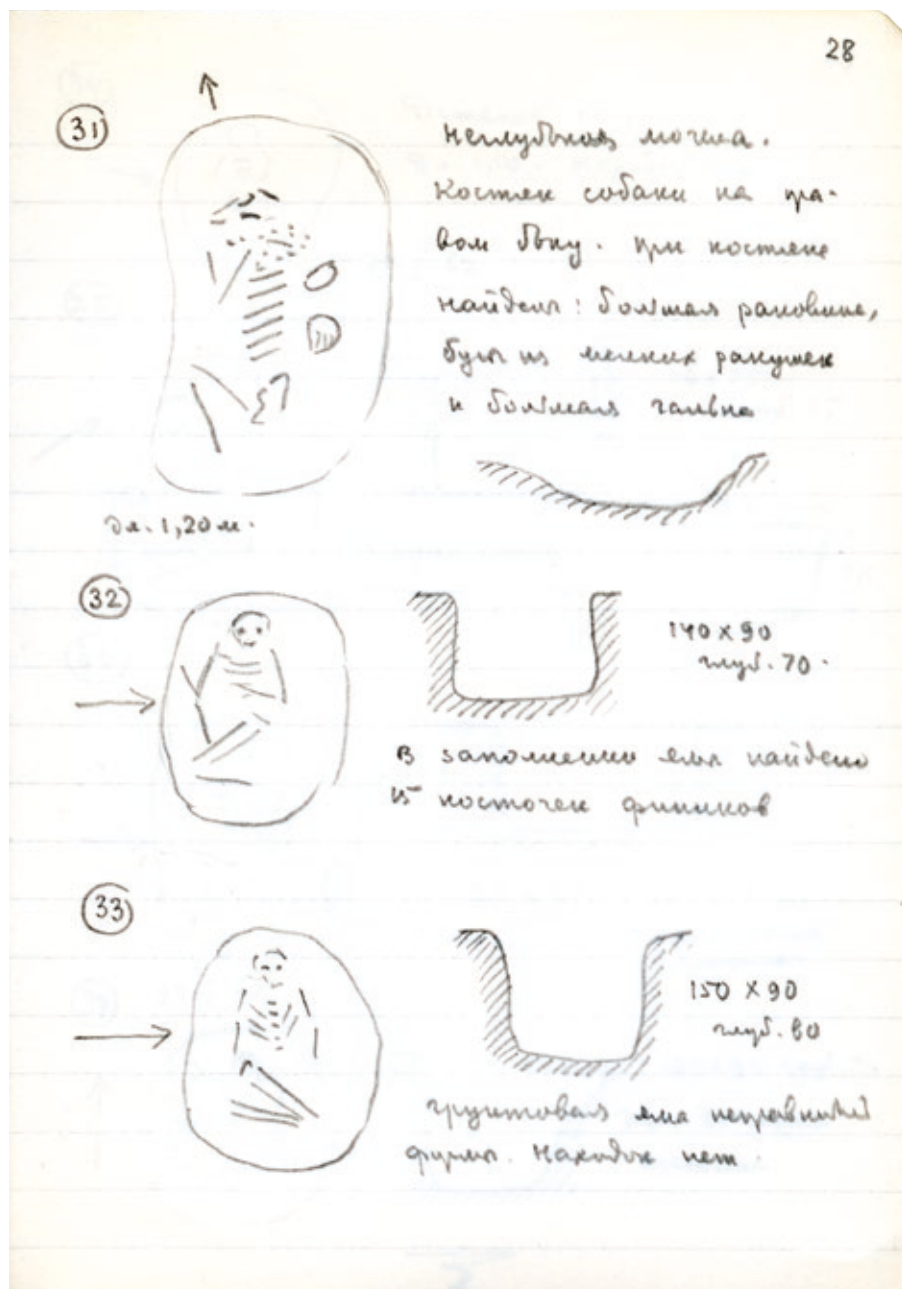 28
31
неглубокая могила.
Костяк собаки на пра-
вом боку. при костяке
найдены: большая раковина,
бусы из мелких ракушек
и большая галька
дл. 1,20 м.
32
140 x 90
глуб. 70.
В заполнении ямы найдено
15 косточек фиников
33
150 x 90
глуб. 80
грунтовая яма неправильной
формы. Находок нет.